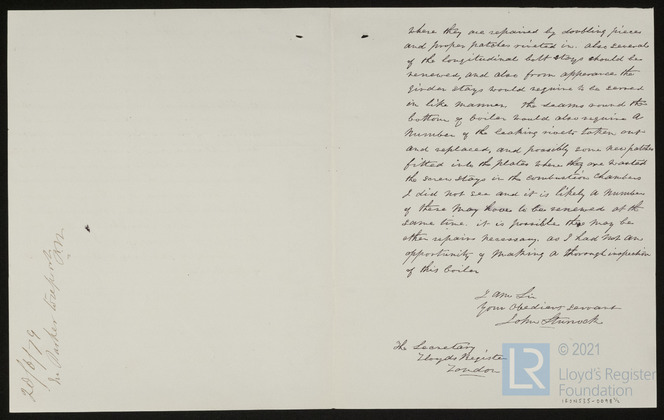 where they are repaired by doubling pieces
and proper patches rivated in. also several
of the longitudinal bolt stays should be
renewed, and also from apperance the
girder stays would require to be served
in like manner. the seams round the
bottom of boiler would also require a
number of the leaking rivets taken out
and replaced, and possibly some new patches
fitted into the plates where they are wasted
the screw stays in the combustion chambers
I did not see and it is likely a number
of these may have to be renewed at the
same time. it is possible there may be
other repairs necessary. as I had not an
opportunity of making a thorough inspection
of this boiler
I am Sir
Your Obedient Servant
John Sturrock
The Secretary
Lloyds Register
London
20/6/79
Mr Parker to report
© 2021
LR
Lloyd's Register
Foundation